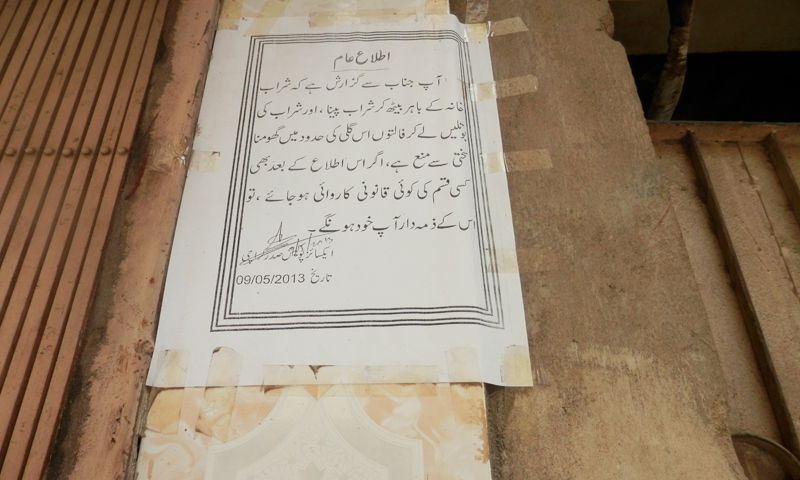 اطلاع عام
آپ جناب سے گزارش ہے کہ شراب
خانہ کے باہر بیٹھ کر شراب پینا ، اور شراب کی
بوتلیں لے کر فالتوں اس گلی کی حدود میں گھومنا
سختی سے منع ہے، اگر اس اطلاع کے بعد بھی
کسی قسم کی کوئی قانونی کاروائی ہو جائے ، تو
اس کے ذمہ دار آپ خود ہونگے ۔
ایکسائز پولیس صدر کراچی
تاریخ 09/05/2013